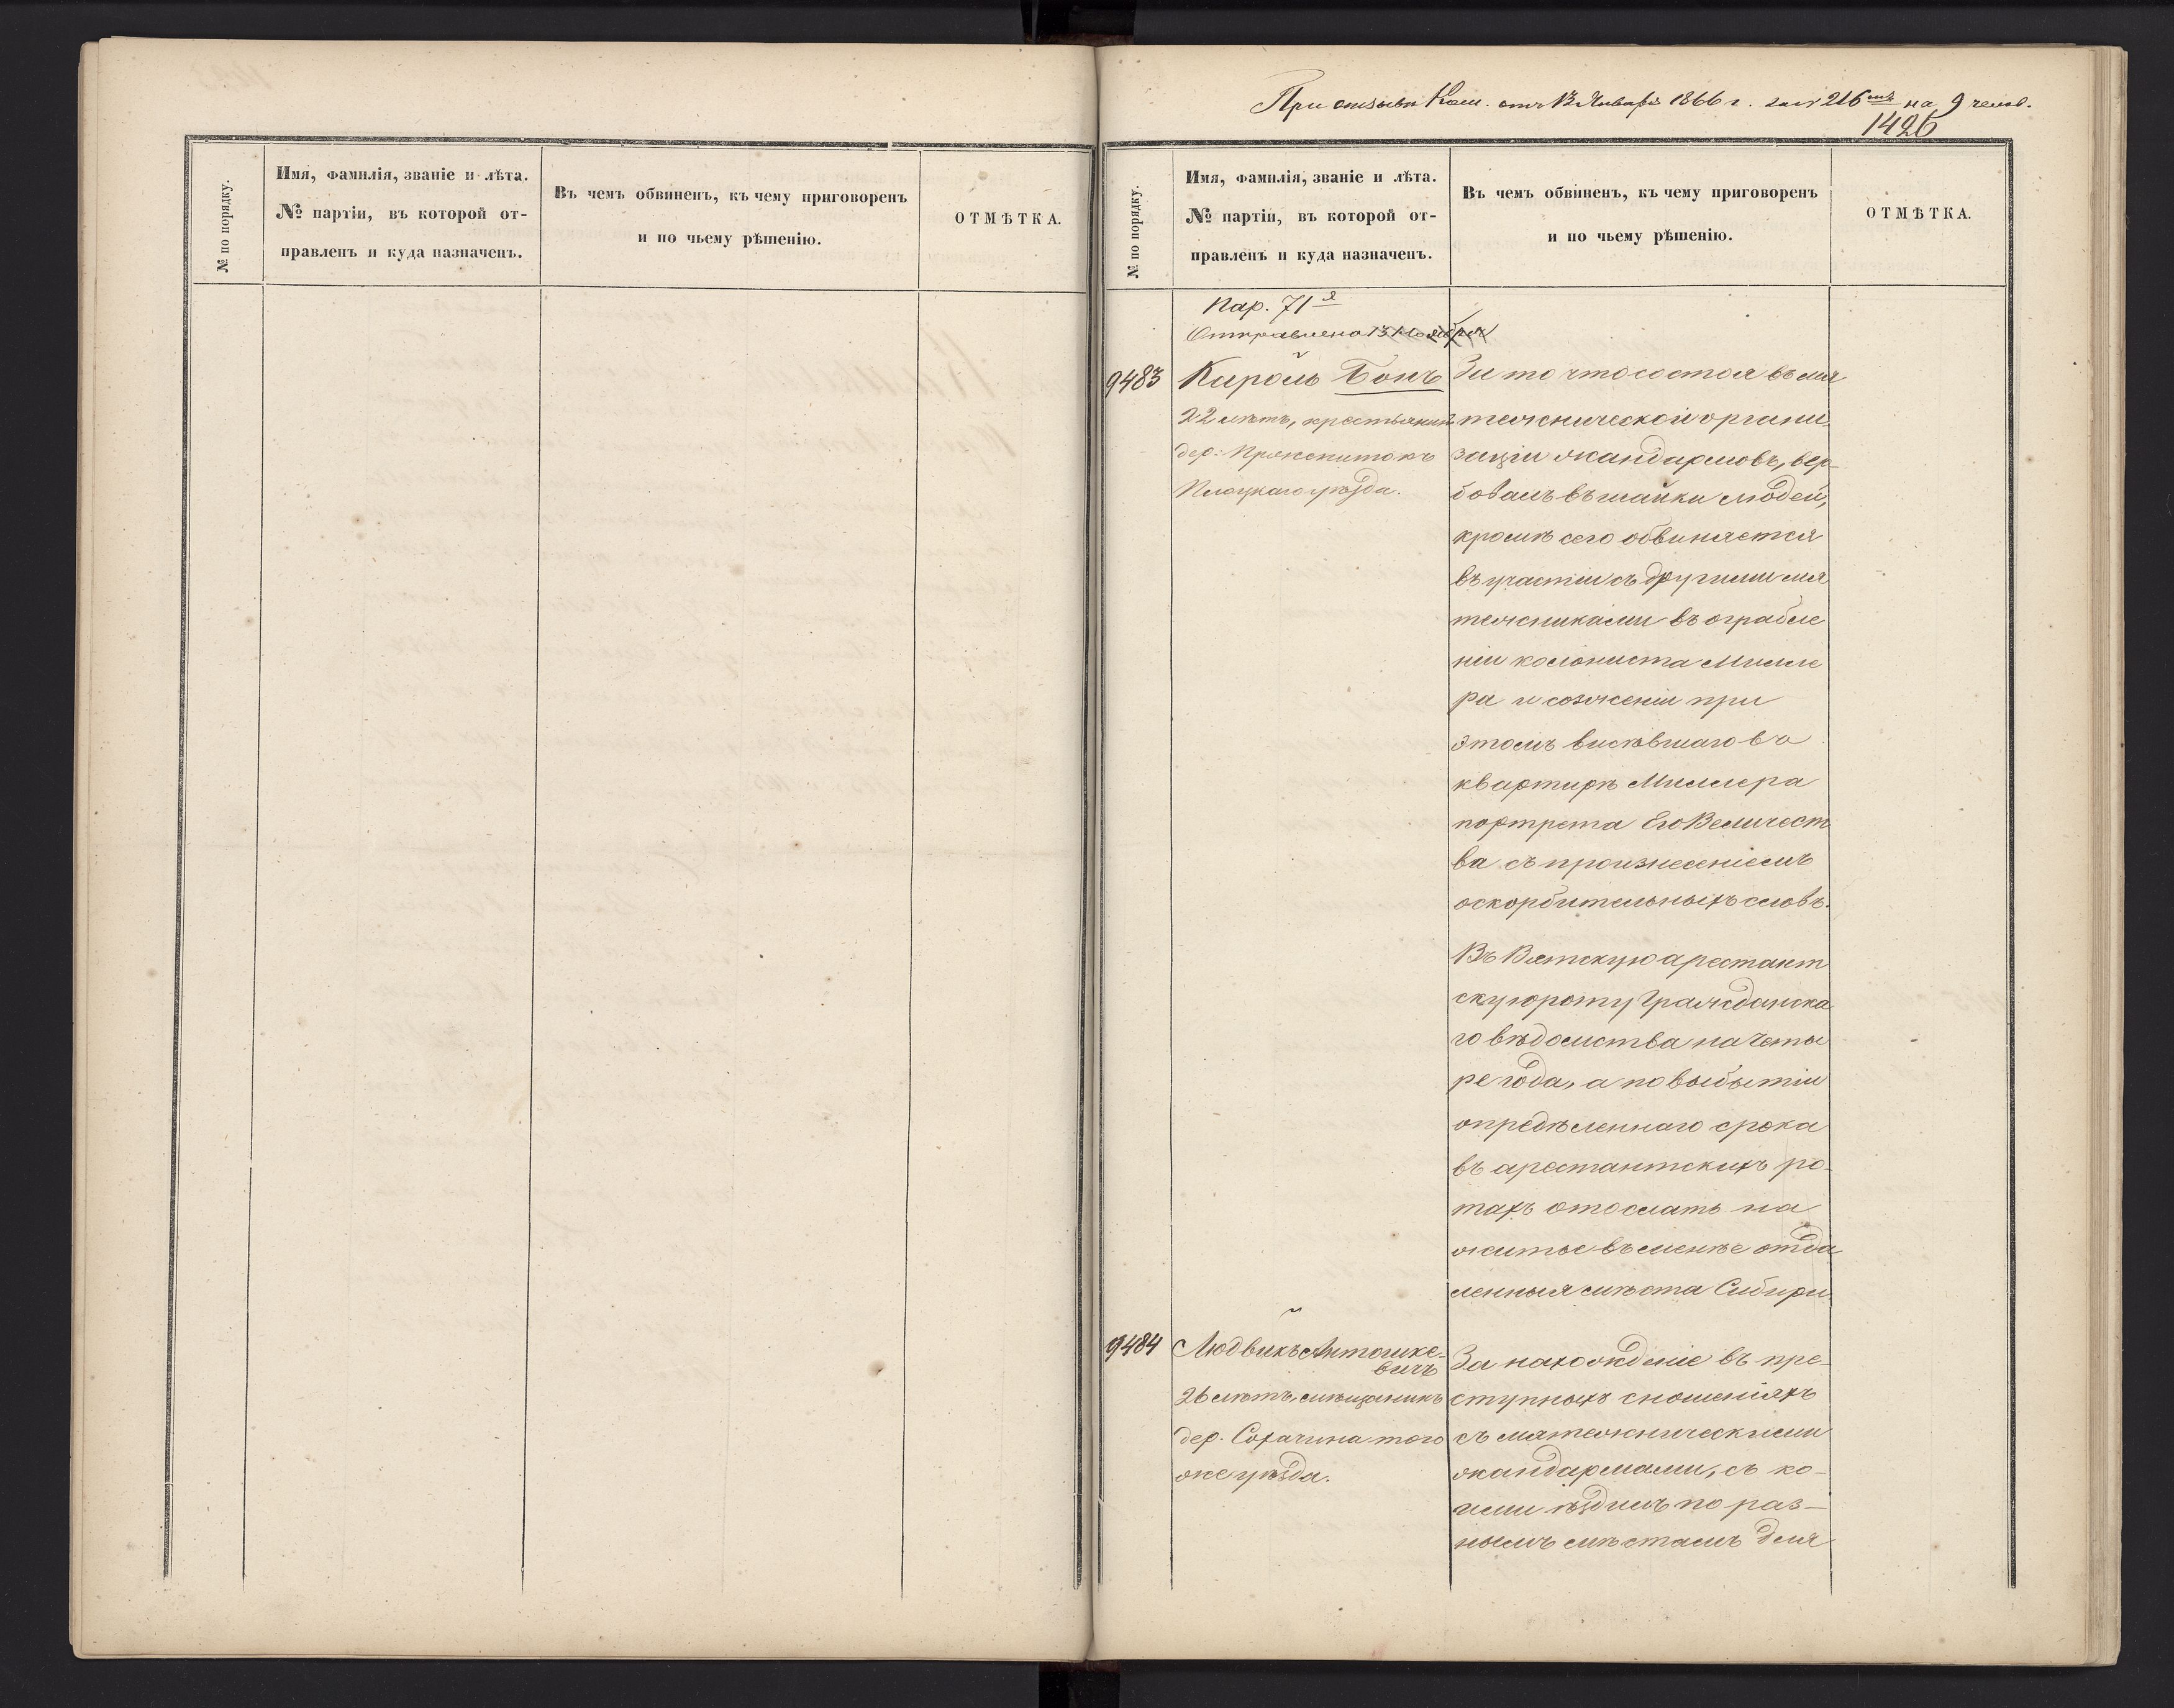 № по порядку.
Имя, фамилія, званіе и лѣта.
№ партіи, въ которой от-
правленъ и куда назначенъ.
Въ чемъ обвиненъ, къ чему приговоренъ
и по чьему рѣшенію.
ОТМѢТКА.
При отзывѣ Ком. отъ 13 Января 1866 г. за № 216 на 9 челов.
1426
№ по порядку.
Имя, фамилія, званіе и лѣта.
№ партіи, въ которой от-
правленъ и куда назначенъ.
Въ чемъ обвиненъ, къ чему приговоренъ
и по чьему рѣшенію.
ОТМѢТКА.
Пар. 71я
Отправлено 13 Ноября
9483
Кароль Бонъ
22 лѣтъ, крестьянинъ
дер.
Плоцкаго уѣзда.
За то что состоя въ мя
тежнической органи-
заціи жандармовъ, вер-
бовалъ въ шайки людей,
кромѣ сего обвиняется
въ участіи съ другими мя
тежниками въ ограбле
ніи колониста Милле
ра и сожженіи при
этомъ висѣвшаго въ
квартирѣ Миллера
портрета Его Величест
ва съ произнесеніемъ
оскорбительныхъ словъ.
Въ Вятскую арестант
скую роту Гражданска
го вѣдомства на четы
ре года, а по выбытіи
опредѣленнаго срока
въ арестантскихъ ро-
тахъ отослать на
житье въ менѣе отда
ленныя мѣста Сибири.
9484
Людвикъ Антошке-
вичъ
26 лѣтъ, мѣщанинъ
дер. Сохачина того
же уѣзда.
За нахожденіе въ пре-
ступныхъ сношеніяхъ
съ мятежническими
жандармами, съ ко-
ими ѣздилъ по раз-
нымъ мѣстамъ для